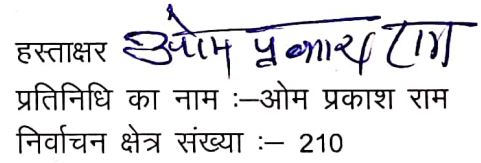 हस्ताक्षर ओम प्रकाश राम
प्रतिनिधि का नाम :–ओम प्रकाश राम
निर्वाचन क्षेत्र संख्या :– 210